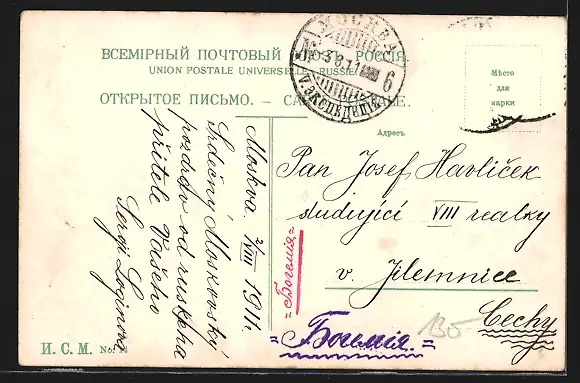 ВСЕМІРНЫЙ ПОЧТОВЫЙ СОЮЗЪ. РОССІЯ.
UNION POSTALE UNIVERSELLE. RUSSIE.
ОТКРЫТОЕ ПИСЬМО. – CARTE POSTALE.
МОСКВА
3 8 11
6
V. ЭКСПЕДИЦІЯ
Мѣсто
для
марки
Адресъ
Moskva 2/VIII 1911.
Srdečný Moskovský
pozdrav od ruskeha
přitele Vašeho
Sergij Loginov
Pan Josef Havliček
studující VIII realky
v. Jilemnice
Čechy
=Богемія=
=Богемія.=
130
И. С. М. No. 14